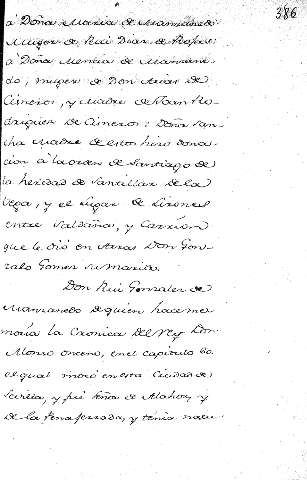 386
à Doña Maria de Manzanedo
Muger de Rui Diaz de Rojas:
à Doña Mencia de Manzane-
do, muger de Don Arias de
Cisneros, y Madre de Juan Ro-
driguez de Cisneros: Doña San-
cha Madre de estos hizo dona-
cion à la orden de Santiago de
la heredad de Santillan de la
Vega, y el Lugar de
entre Saldaña, y Carrion
que le diò en Arras Don Gon-
zalo Gomez su Marido.
Don Rui Gonzalez de
Manzanedo de quien hace me-
moria la Cronica del Rey Don
Alonso onceno, en el capitulo 60.
el qual moriò en esta Ciudad de
Sevilla, y fué señor de y
de la Peñaferrada, y tenia natu-